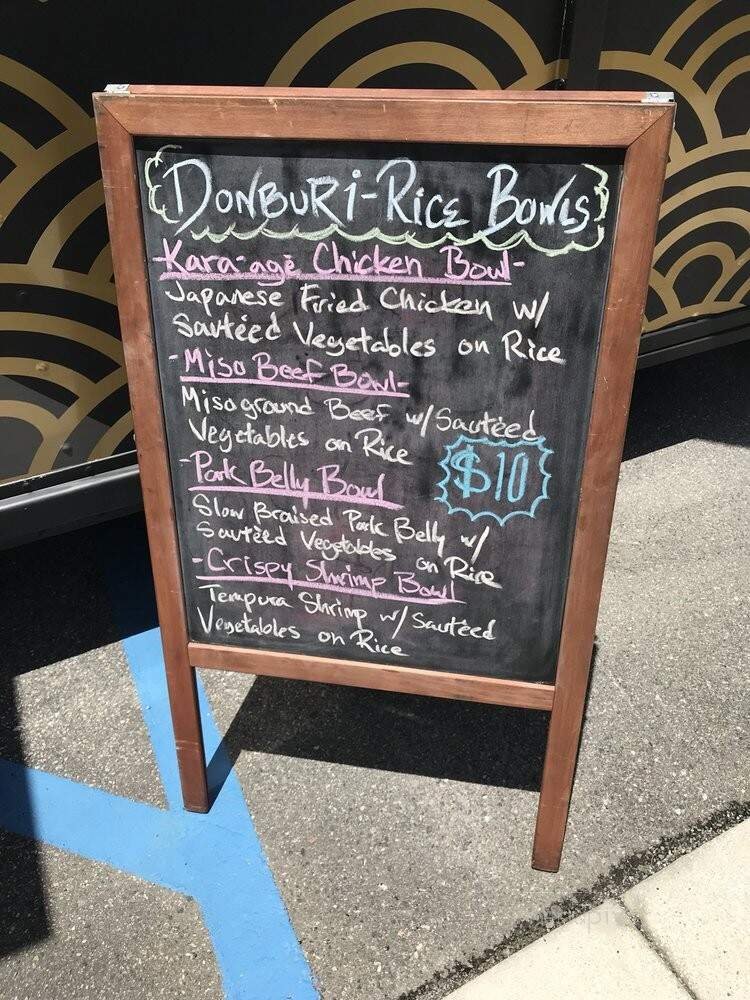 DONBURi-RICE BOWLS
-Kara-age Chicken Bowl-
Japanese Fried Chicken w/
Sautéed Vegetables on Rice
-Miso Beef Bowl-
Miso ground Beef w/ Sautéed
Vegetables on Rice
$10
-Pork Belly Bowl
Slow Braised Pork Belly w/
Sautéed Vegetables on Rice
-Crispy Shrimp Bowl
Tempura Shrimp w/ Sautéed
Vegetables on Rice